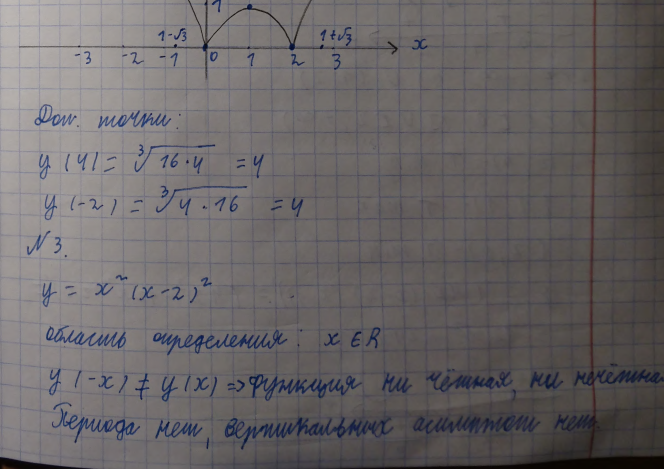 1
1-√3 1+√3
-3 -2 -1 0 1 2 3 x
Доп. точки:
y(4) = ∛(16·4) = 4
y(-2) = ∛(4·16) = 4
N3.
y = x²(x-2)²
область определения: x ∈ R
y(-x) ≠ y(x) => функция ни чётная, ни нечётна
Периода нет, вертикальных асимптот нет.